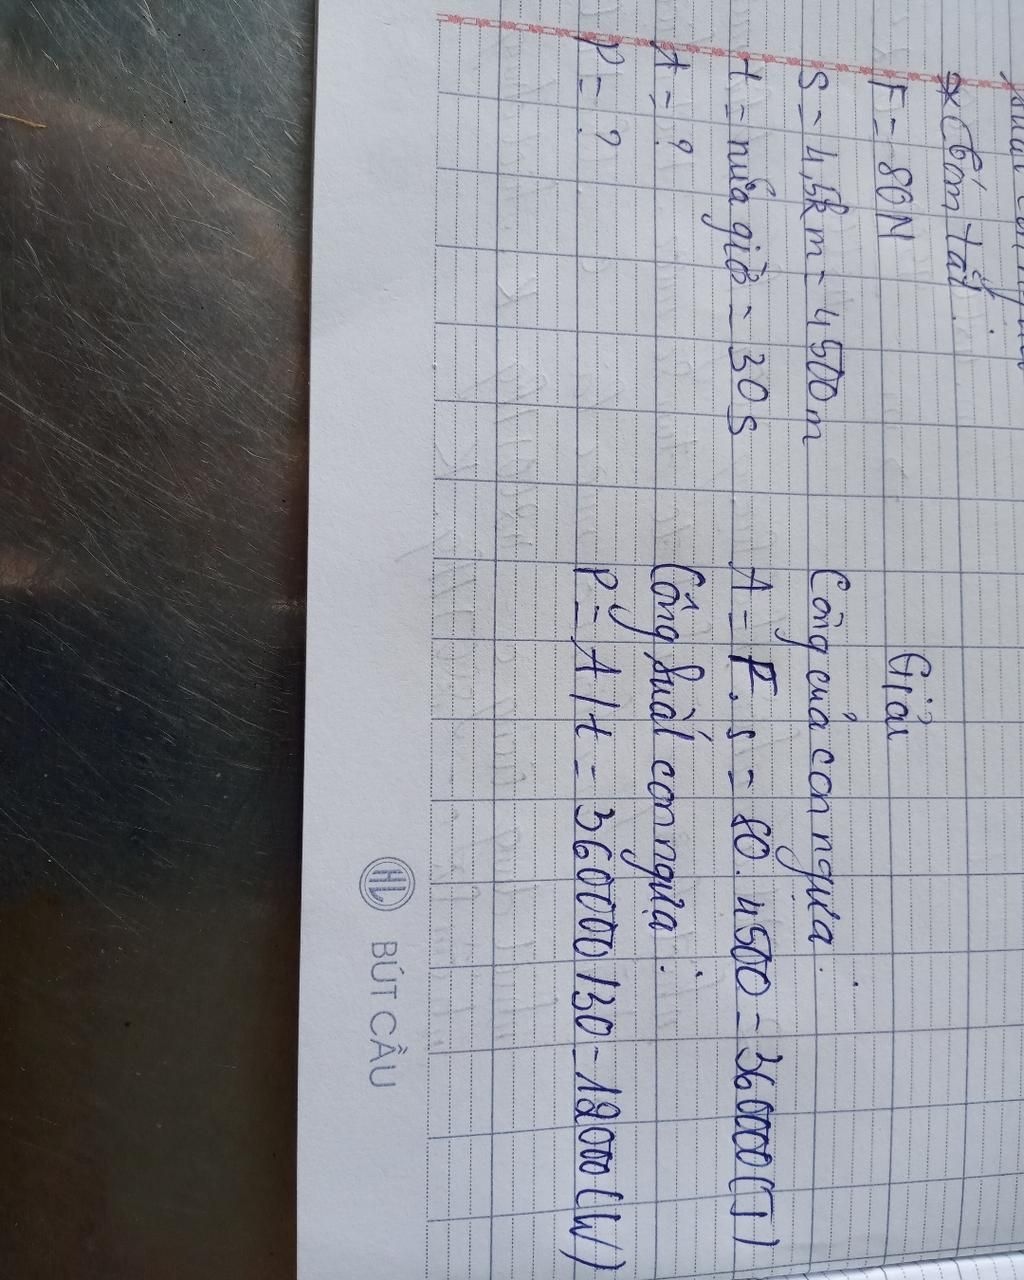 * Tóm tắt:
F = 80N
S = 4,5km = 4500m
t = nửa giờ = 30s
A = ?
P = ?
Giải
Công của con ngựa:
A = F.s = 80.4500 = 360000(J)
Công suất con ngựa:
P = A/t = 360000/30 = 12000(W)
HL BÚT CẦU